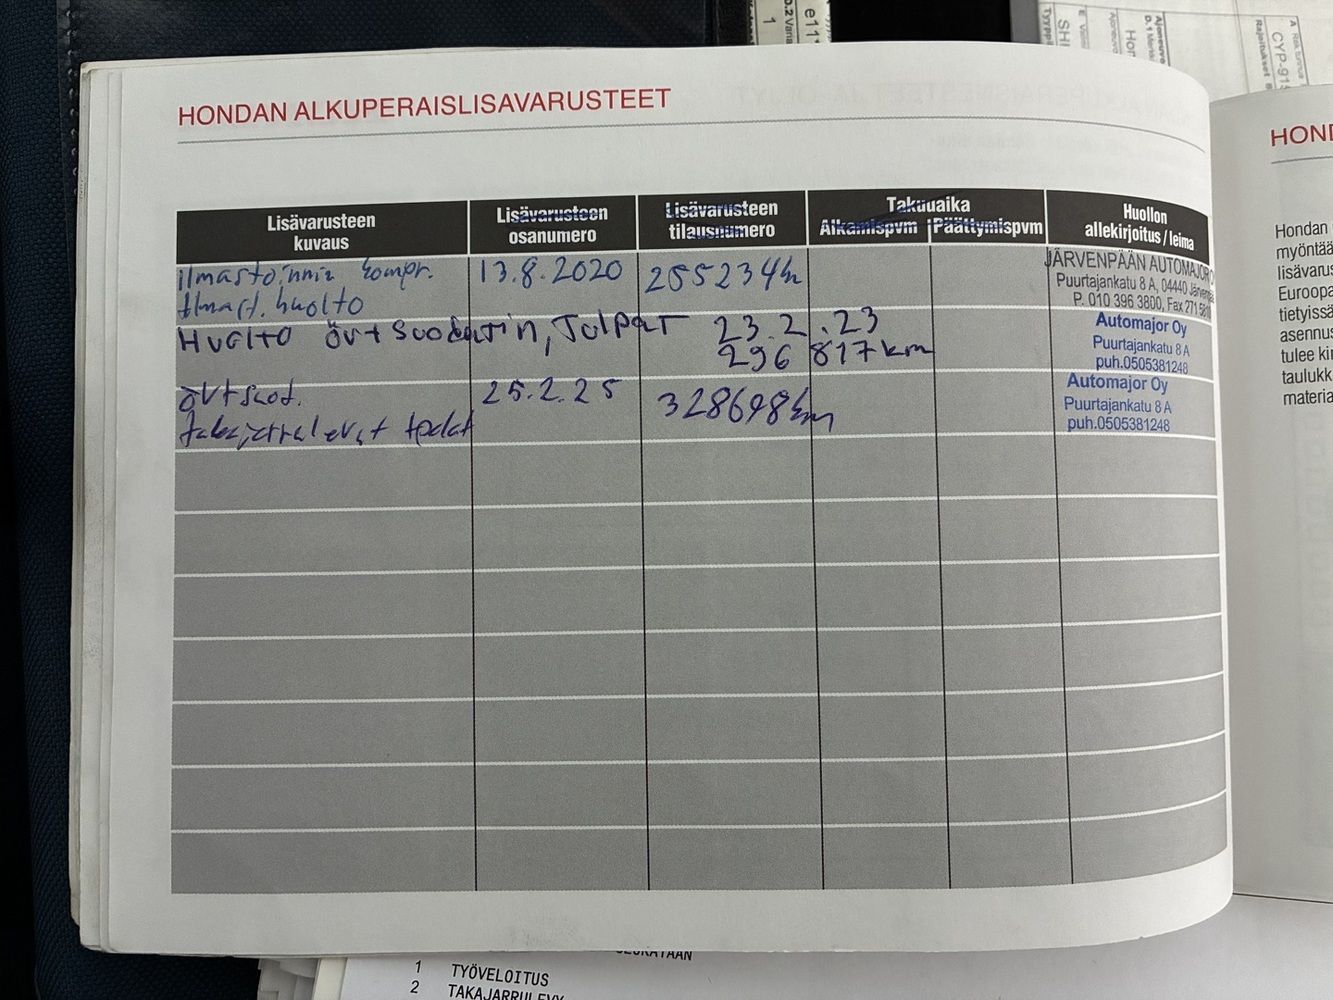 e11
D.2 Varia
1
HONDAN ALKUPERAISLISAVARUSTEET
Lisävarusteen kuvaus
Lisävarusteen osanumero
Lisävarusteen tilausnumero
Takuuaika
Alkamispvm
Päättymispvm
Huollon allekirjoitus / leima
ilmastoinnin kompr.
13.8.2020
255234km
ilmast. huolto
JÄRVENPÄÄN AUTOMAJOR O
Puurtajankatu 8 A, 04440 Järvenpä
P. 010 396 3800, Fax 271 5810
Huolto öv+suodatin, Tulpat 23.2.23
296 817km
Automajor Oy
Puurtajankatu 8 A
puh.0505381248
öv+suod.
25.2.25
328698km
takajarrulevyt + palat
Automajor Oy
Puurtajankatu 8 A
puh.0505381248
1 TYÖVELOITUS
2 TAKAJARRULEVY
HOND
Hondan
myöntää
lisävarus
Euroopa
tietyissä
asennus
tulee kir
taulukk
materia